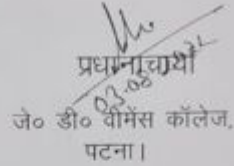 प्रधानाचार्या
03.08
जे० डी० वीमेंस कॉलेज,
पटना।